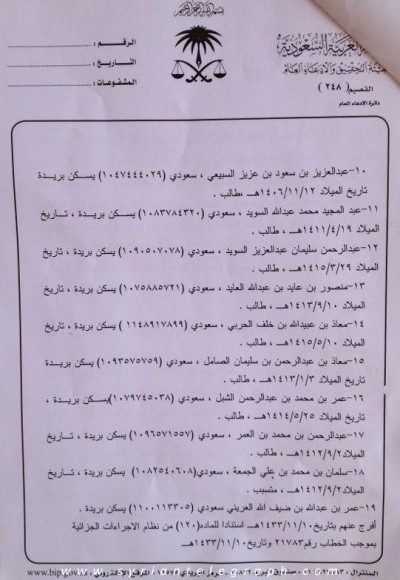 بسم الله الرحمن الرحيم
العربية السعودية
هيئة التحقيق والادعاء العام
القصيم ( ٢٤٨ )
دائرة الادعاء العام
الرقم :
التاريخ :
المشفوعات :
١٠-عبدالعزيز بن سعود بن عزيز السبيعي ، سعودي (١٠٤٧٤٤٤٠٢٩) يسكن بريدة
تاريخ الميلاد ١٤٠٦/١١/١٢هـ ،طالب .
١١-عبد المجيد محمد عبدالله السويد ، سعودي (١٠٨٣٧٨٤٣٢٠) يسكن بريدة ، تاريخ
الميلاد ١٤١١/٤/١٩هـ ، طالب .
١٢-عبدالرحمن سليمان عبدالعزيز السويد ، سعودي (١٠٩٠٥٠٧٠٧٨) يسكن بريدة ، تاريخ
الميلاد ١٤١٥/٣/٢٩هـ ، طالب .
١٣-منصور بن عايد بن عبدالله العايد ، سعودي (١٠٧٥٨٨٥٧٢١) يسكن بريدة ، تاريخ
الميلاد ١٤١٣/٩/١٠هـ ، طالب .
١٤-معاذ بن عبيدالله بن خلف الحربي ، سعودي (١١٤٨٩١٧٨٩٩ ) يسكن بريدة ، تاريخ
الميلاد ١٤١٥/٥/١٠هـ ، طالب .
١٥-معاذ بن عبدالرحمن بن سليمان الصامل ، سعودي (١٠٩٣٥٧٥٧٥٩) يسكن بريدة
تاريخ الميلاد ١٤١٣/١/٣هـ ، طالب .
١٦-عمر بن محمد بن عبدالرحمن الشبل ، سعودي (١٠٧٩٧٤٥٠٣٨)يسكن بريدة ،
تاريخ الميلاد ١٤١٤/٥/٢٥هـ ، طالب .
١٧-عبدالرحمن بن محمد بن العمر ، سعودي (١٠٩٦٥٧١٥٥٧) يسكن بريدة ، تاريخ
الميلاد ١٤١٢/٩/٢هـ ، طالب .
١٨-سلمان بن محمد بن علي الجمعة ، سعودي(١٠٨٢٥٤٠٦٠٨) يسكن بريدة ، تاريخ
الميلاد ١٤١٢/٩/٢هـ ، متسبب .
١٩-عمر بن عبدالله بن ضيف الله العريني سعودي (١١٠٠٠١١٣٣٠٥) يسكن بريدة .
أفرج عنهم بتاريخ١٤٣٣/١١/١٠هـ استنادا للماده(١٢٠) من نظام الاجراءات الجزائية
بموجب الخطاب رقم٢١٧٨٣ وتاريخ١٤٣٣/١١/١٠هـ
www.syriantelegraph.com